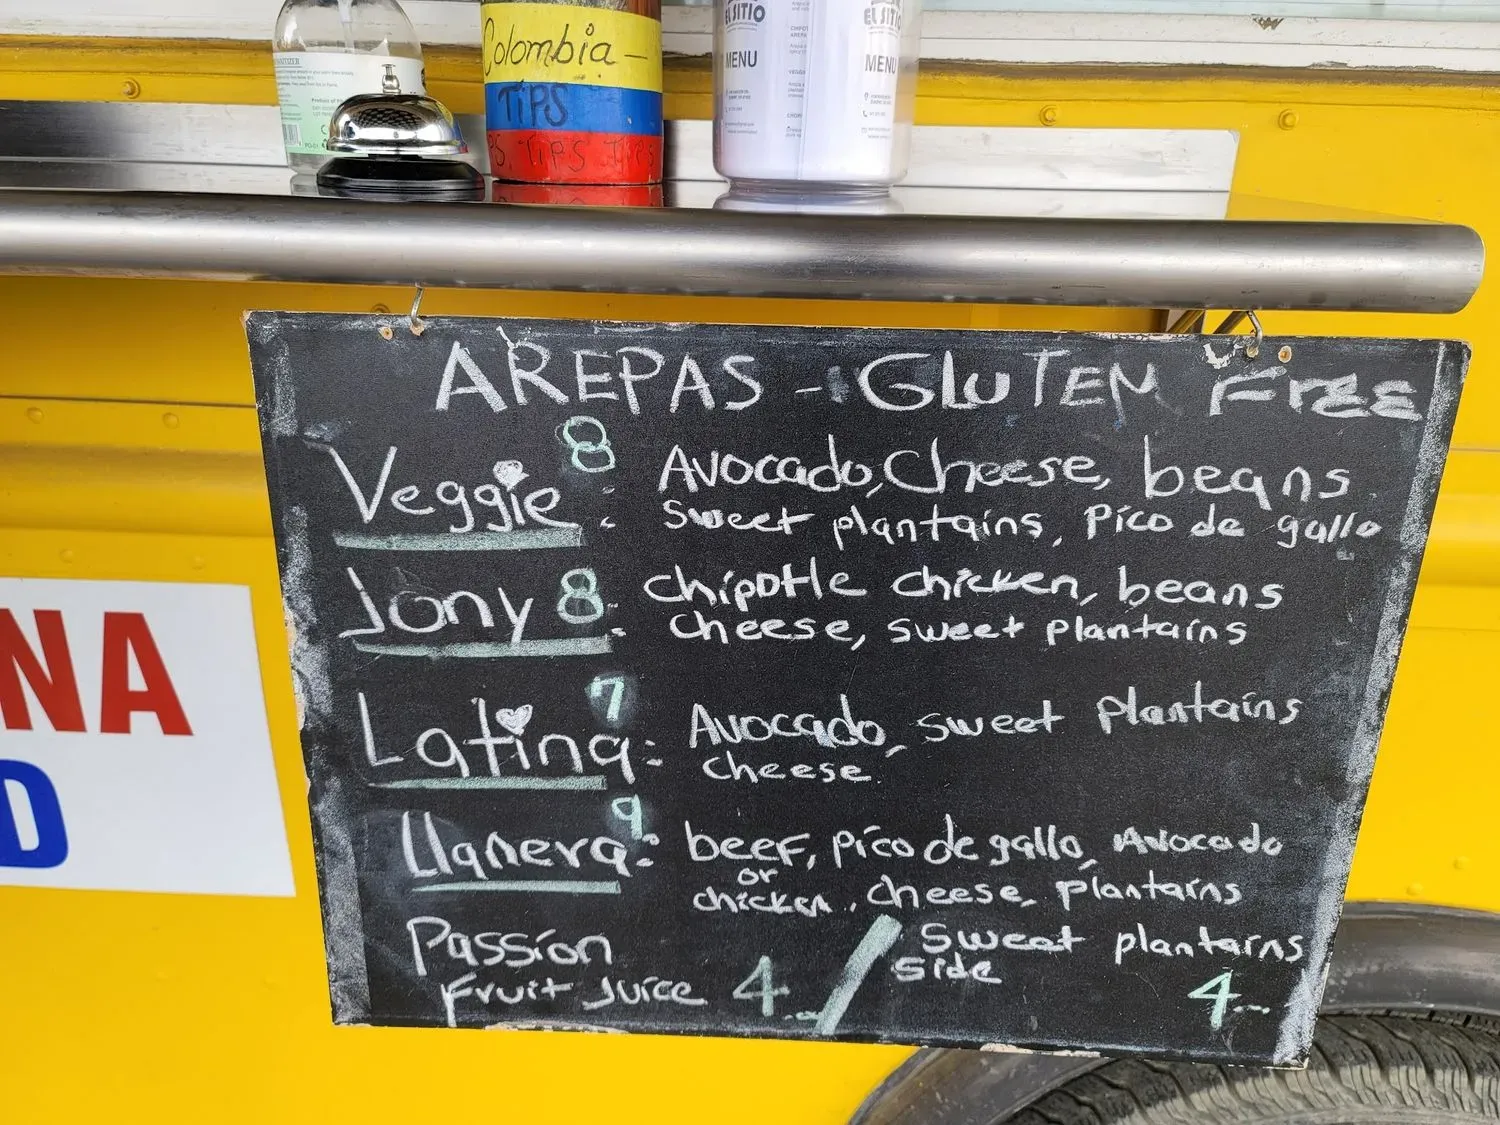 SANITIZER
Colombia -
TIPS
TIPS TIPS
EL SITIO
MENU
EL SITIO
MENU
AREPAS - GLUTEN FREE
Veggie 8 : Avocado, Cheese, beans
sweet plantains, Pico de gallo
Jony 8 : chipotle chicken, beans
cheese, sweet plantains
Latina 7 : Avocado, sweet plantains
cheese
Llanera 9 : beef, Pico de gallo, Avocado
or
chicken, cheese, plantains
Passion
Fruit Juice 4... / Sweet plantains
side
4...
NA
D